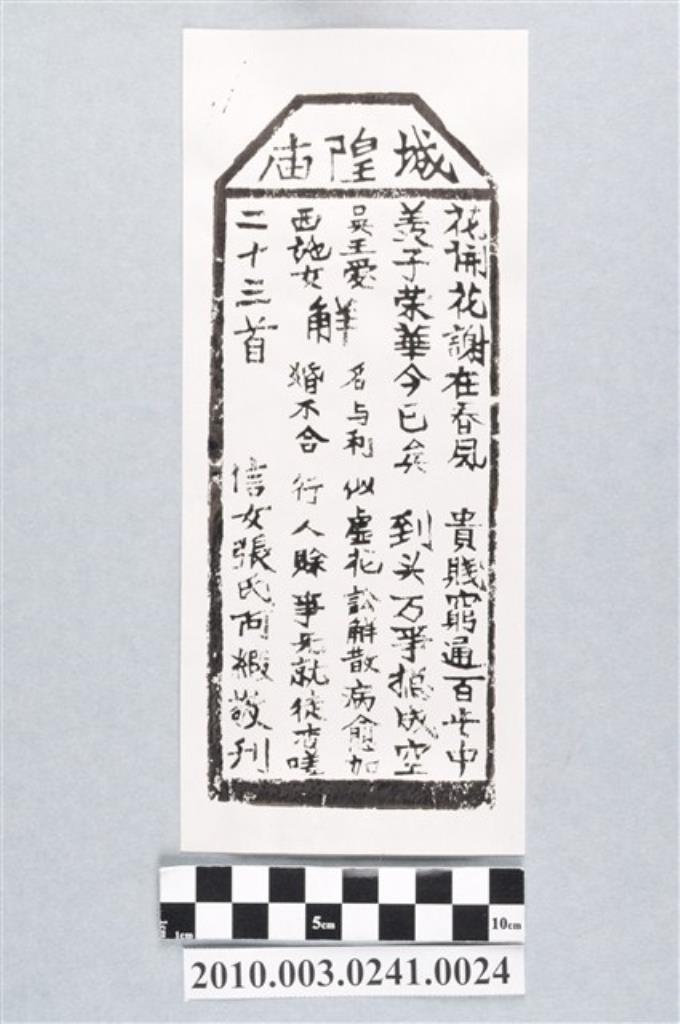 城隍庙
花開花謝在春風 貴賤窮通百中
羨子荣華今已矣 到头万事揔成空
吳王愛
西地女
解
名与利 似虛花 訟解散 病愈加
婚不合 行人賒 事无就 徒嗟
二十三首 信女張氏阿緞敬刊
1cm 5cm 10cm
2010.003.0241.0024